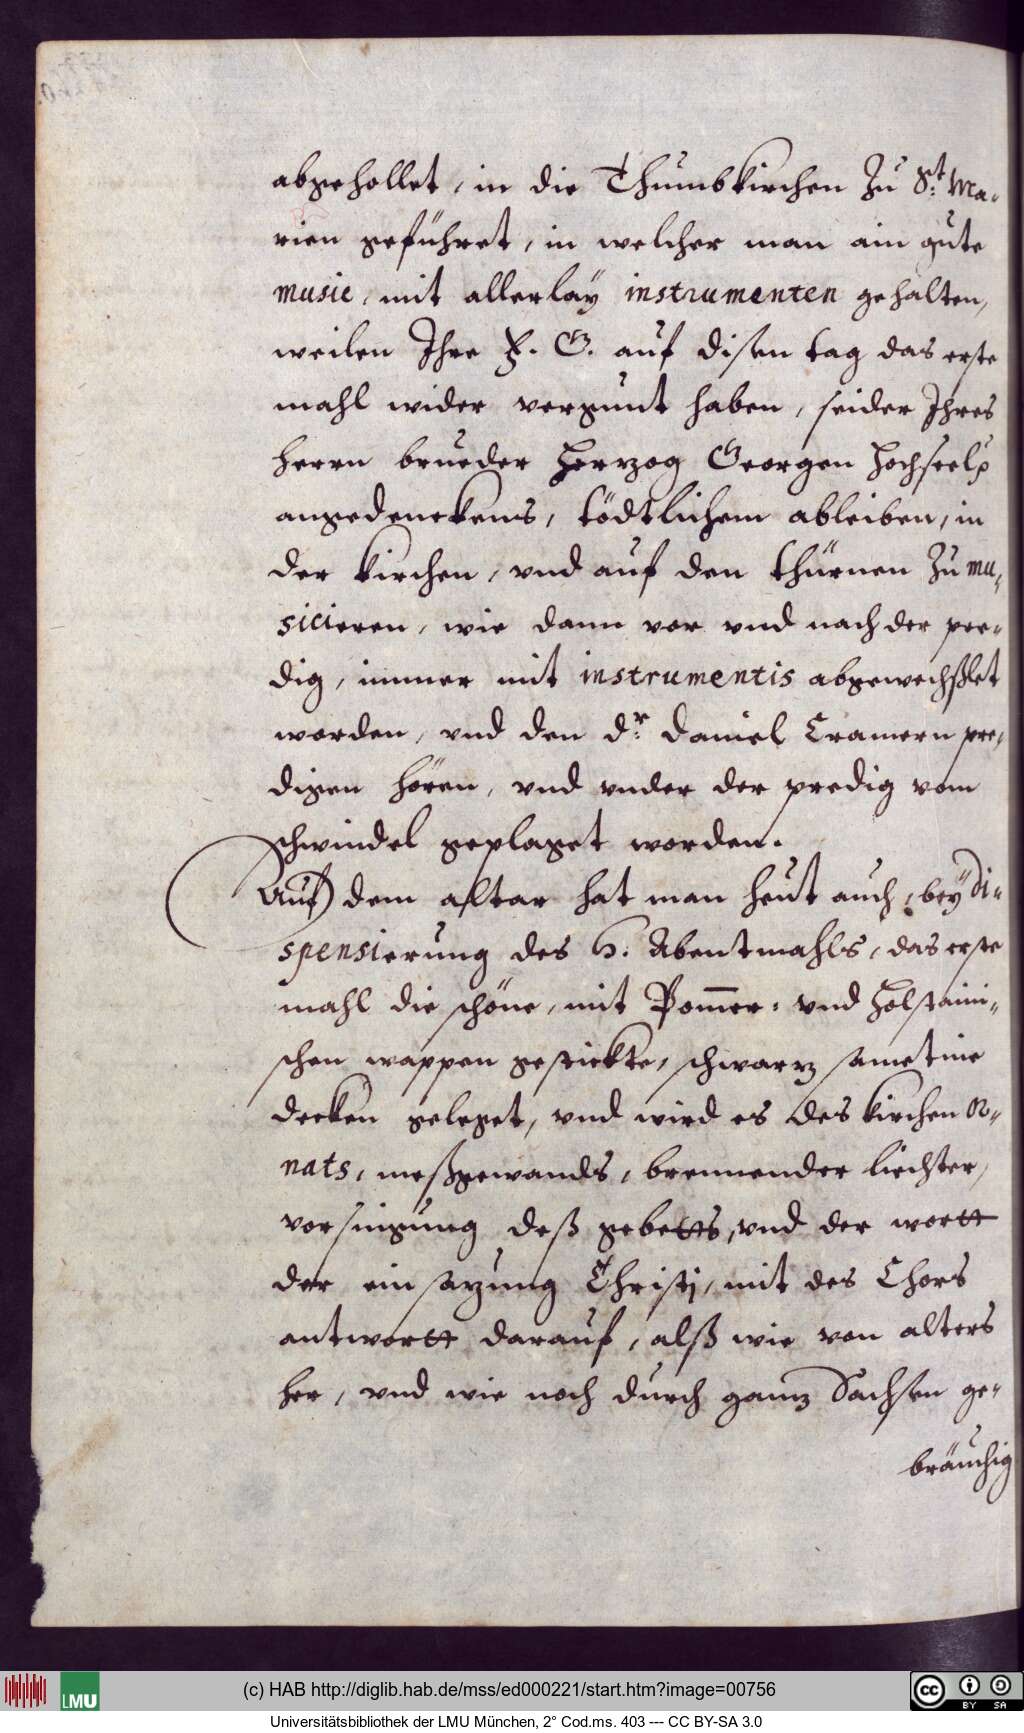 abgehollet, in die Thumbkirchen zu St: Ma-
rien geführet, in welcher man ain gute
music, mit allerlay instrumenten gehalten,
weilen Ihre F. G. auf disen tag das erste
mahl wider vergunt haben, seider Ihres
herrn brueder Herzog Georgen hochseelg
angedenckens, tödtlichem ableiben, in
der kirchen, vnd auf den thürnen zu mu-
sicieren, wie dann vor vnd nach der pre-
dig, immer mit instrumentis abgewechßlet
worden, vnd den dr: Daniel Cramern pre-
digen hören, vnd vnder der predig vom
schwindel geplaget worden.
Auf dem altar hat man heut auch, bey di-
spensierung des H. Abentmahls, das erste
mahl die schöne, mit Pom̄er: vnd Holstaini-
schen wappen gestickte, schwarz sametine
decken geleget, vnd wird es des kirchen or-
nats, meßgewands, brennender liechter,
vorsingung deß gebetts, vnd der wortt
der einsazung Christj, mit des Chors
antwortt darauf, alß wie von alters
her, vnd wie noch durch ganz Sachsen ge-
bräuchig
(c) HAB http://diglib.hab.de/mss/ed000221/start.htm?image=00756
LMU
cc BY SA
Universitätsbibliothek der LMU München, 2° Cod.ms. 403 --- CC BY-SA 3.0